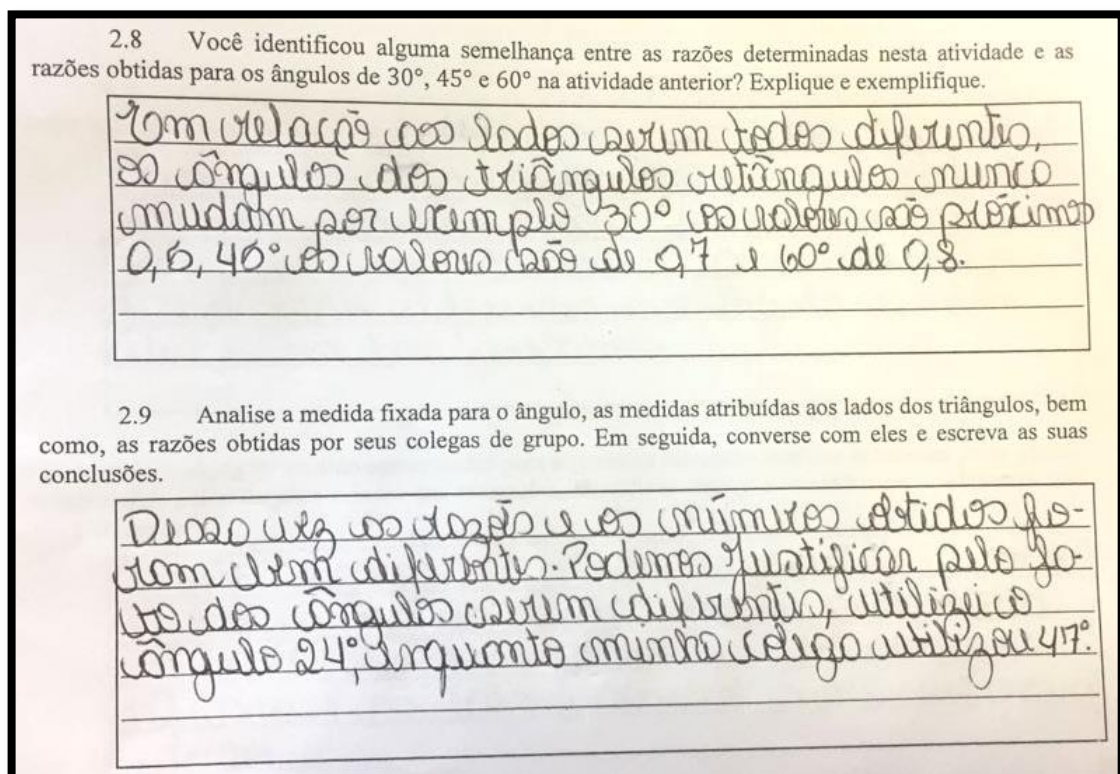 2.8 Você identificou alguma semelhança entre as razões determinadas nesta atividade e as
razões obtidas para os ângulos de 30°, 45° e 60° na atividade anterior? Explique e exemplifique.
Em relação aos lados serem todos diferentes,
os ângulos dos triângulos retângulos nunca
mudam por exemplo 30° os valores são próximos
0,5, 45° os valores são de 0,7 e 60° de 0,8.
2.9 Analise a medida fixada para o ângulo, as medidas atribuídas aos lados dos triângulos, bem
como, as razões obtidas por seus colegas de grupo. Em seguida, converse com eles e escreva as suas
conclusões.
Dessa vez as razões e os números obtidos fo-
ram bem diferentes. Podemos justificar pelo fa-
to dos ângulos serem diferentes, utilizei o
ângulo 24°, enquanto minha colega utilizou 47°.